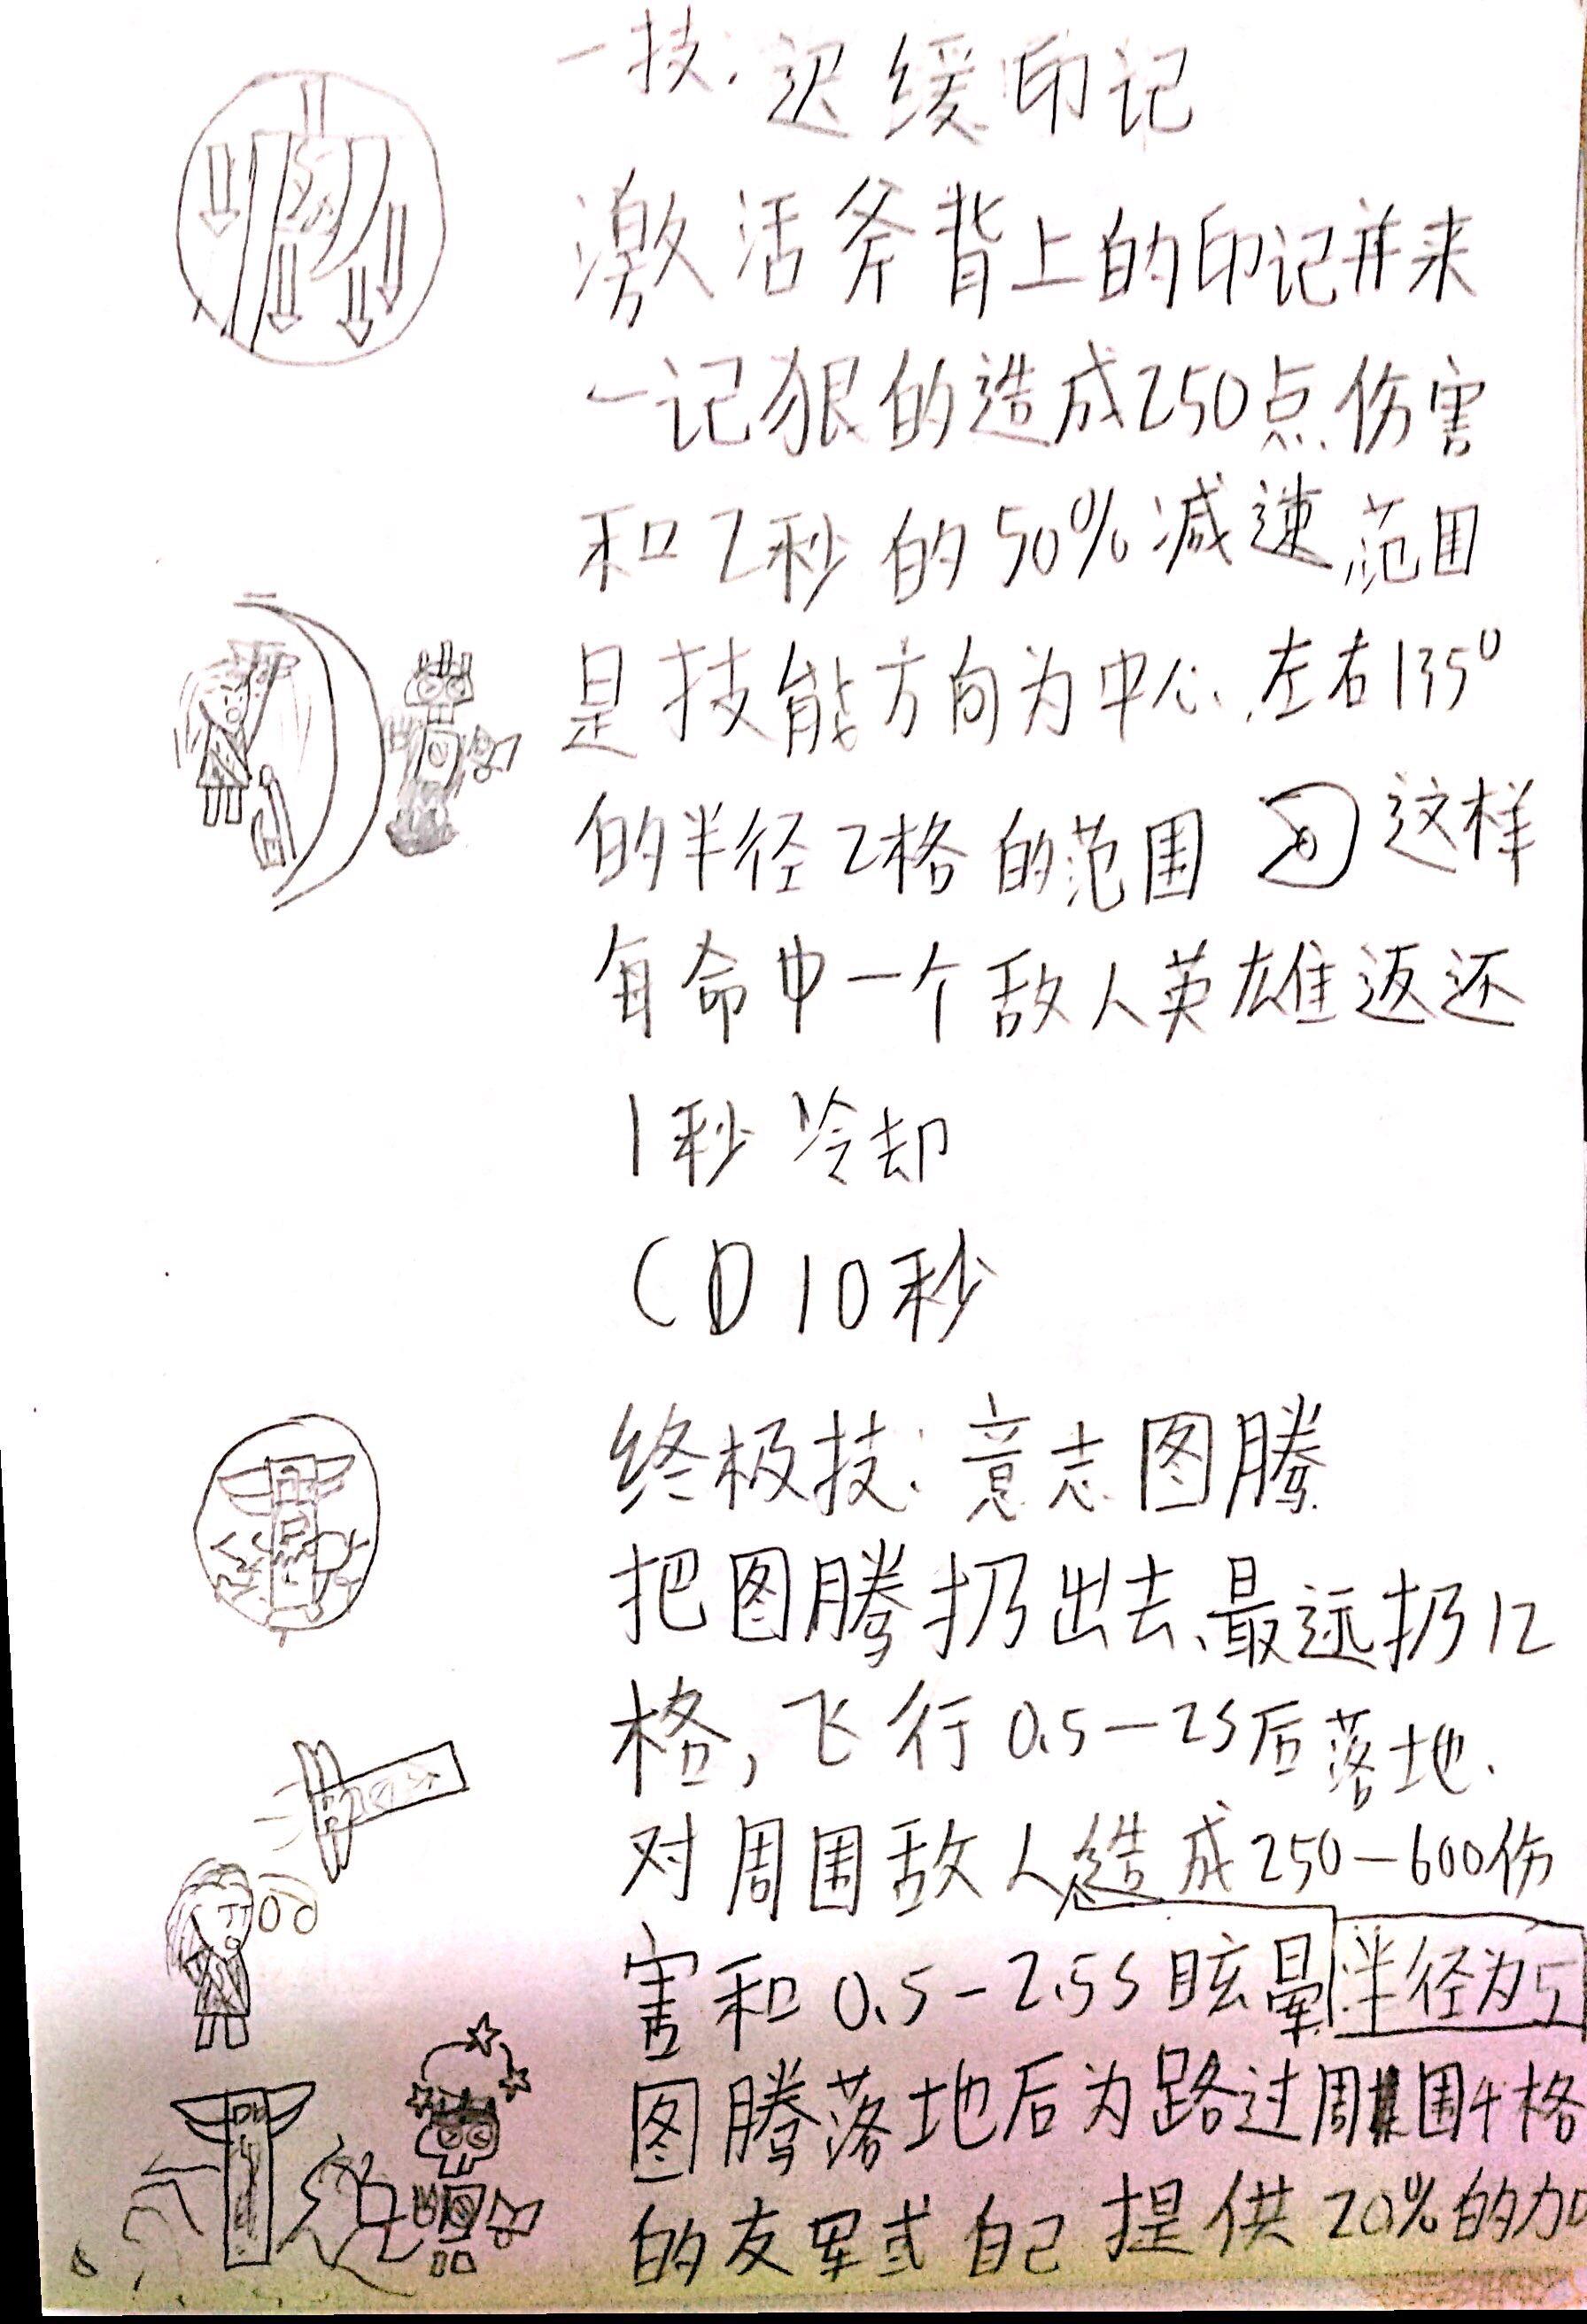 一技:迟缓印记
激活斧背上的印记并来
一记狠的造成250点伤害
和2秒的50%减速范围
是技能方向为中心、左右135°
的半径2格的范围 这样
每命中一个敌人英雄返还
1秒冷却
CD10秒
终极技:意志图腾
把图腾扔出去、最远扔12
格,飞行0.5—2s后落地.
对周围敌人造成250—600伤
害和0.5-2.5s眩晕 半径为5
图腾落地后为路过周围4格
的友军或自己提供20%的加